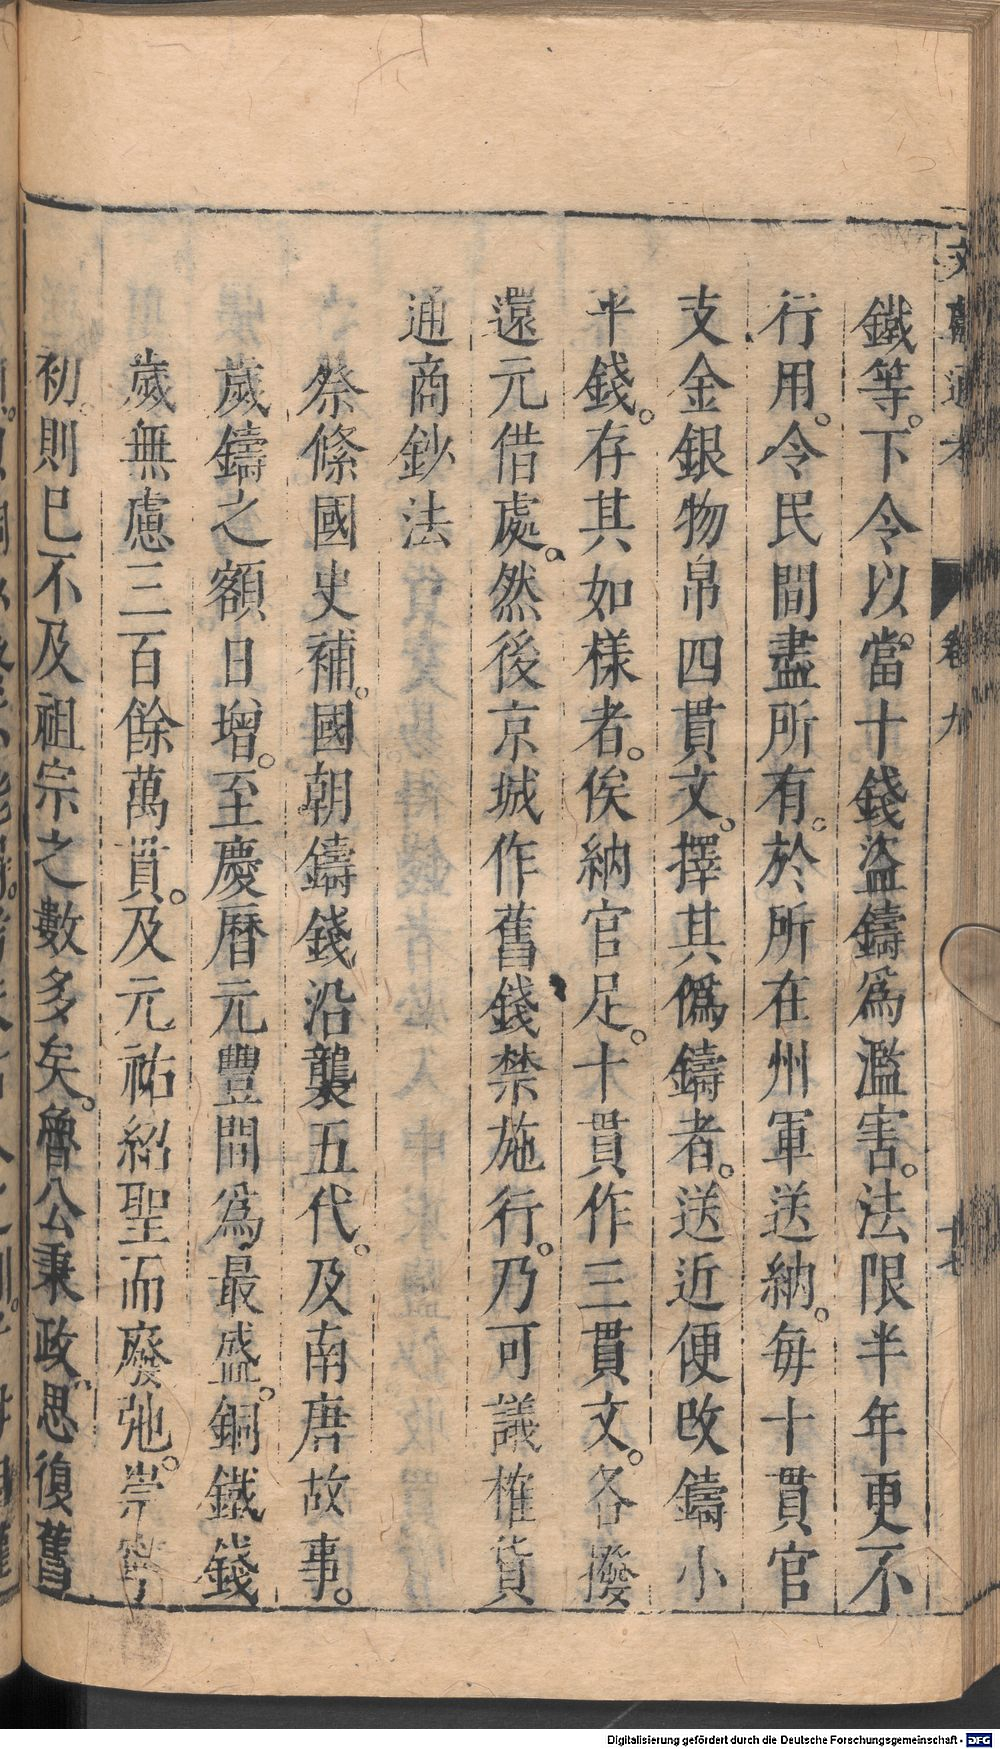 文獻通考 卷九 十七
鐵等。下令以當十錢盜鑄爲濫害。法限半年更不
行用。令民間盡所有。於所在州軍送納。每十貫官
支金銀物帛四貫文。擇其僞鑄者。送近便改鑄小
平錢。存其如樣者。俟納官足。十貫作三貫文。各撥
還元借處。然後京城作舊錢禁施行。乃可議榷貨
通商鈔法
祭絛國史補。國朝鑄錢沿襲五代。及南唐故事。
歲鑄之額日增。至慶曆元豐間爲最盛。銅鐵錢
歲無慮三百餘萬貫。及元祐紹聖而廢弛。崇寧
初。則巳不及祖宗之數多矣。魯公秉政。思復舊
Digitalisierung gefördert durch die Deutsche Forschungsgemeinschaft - DFG